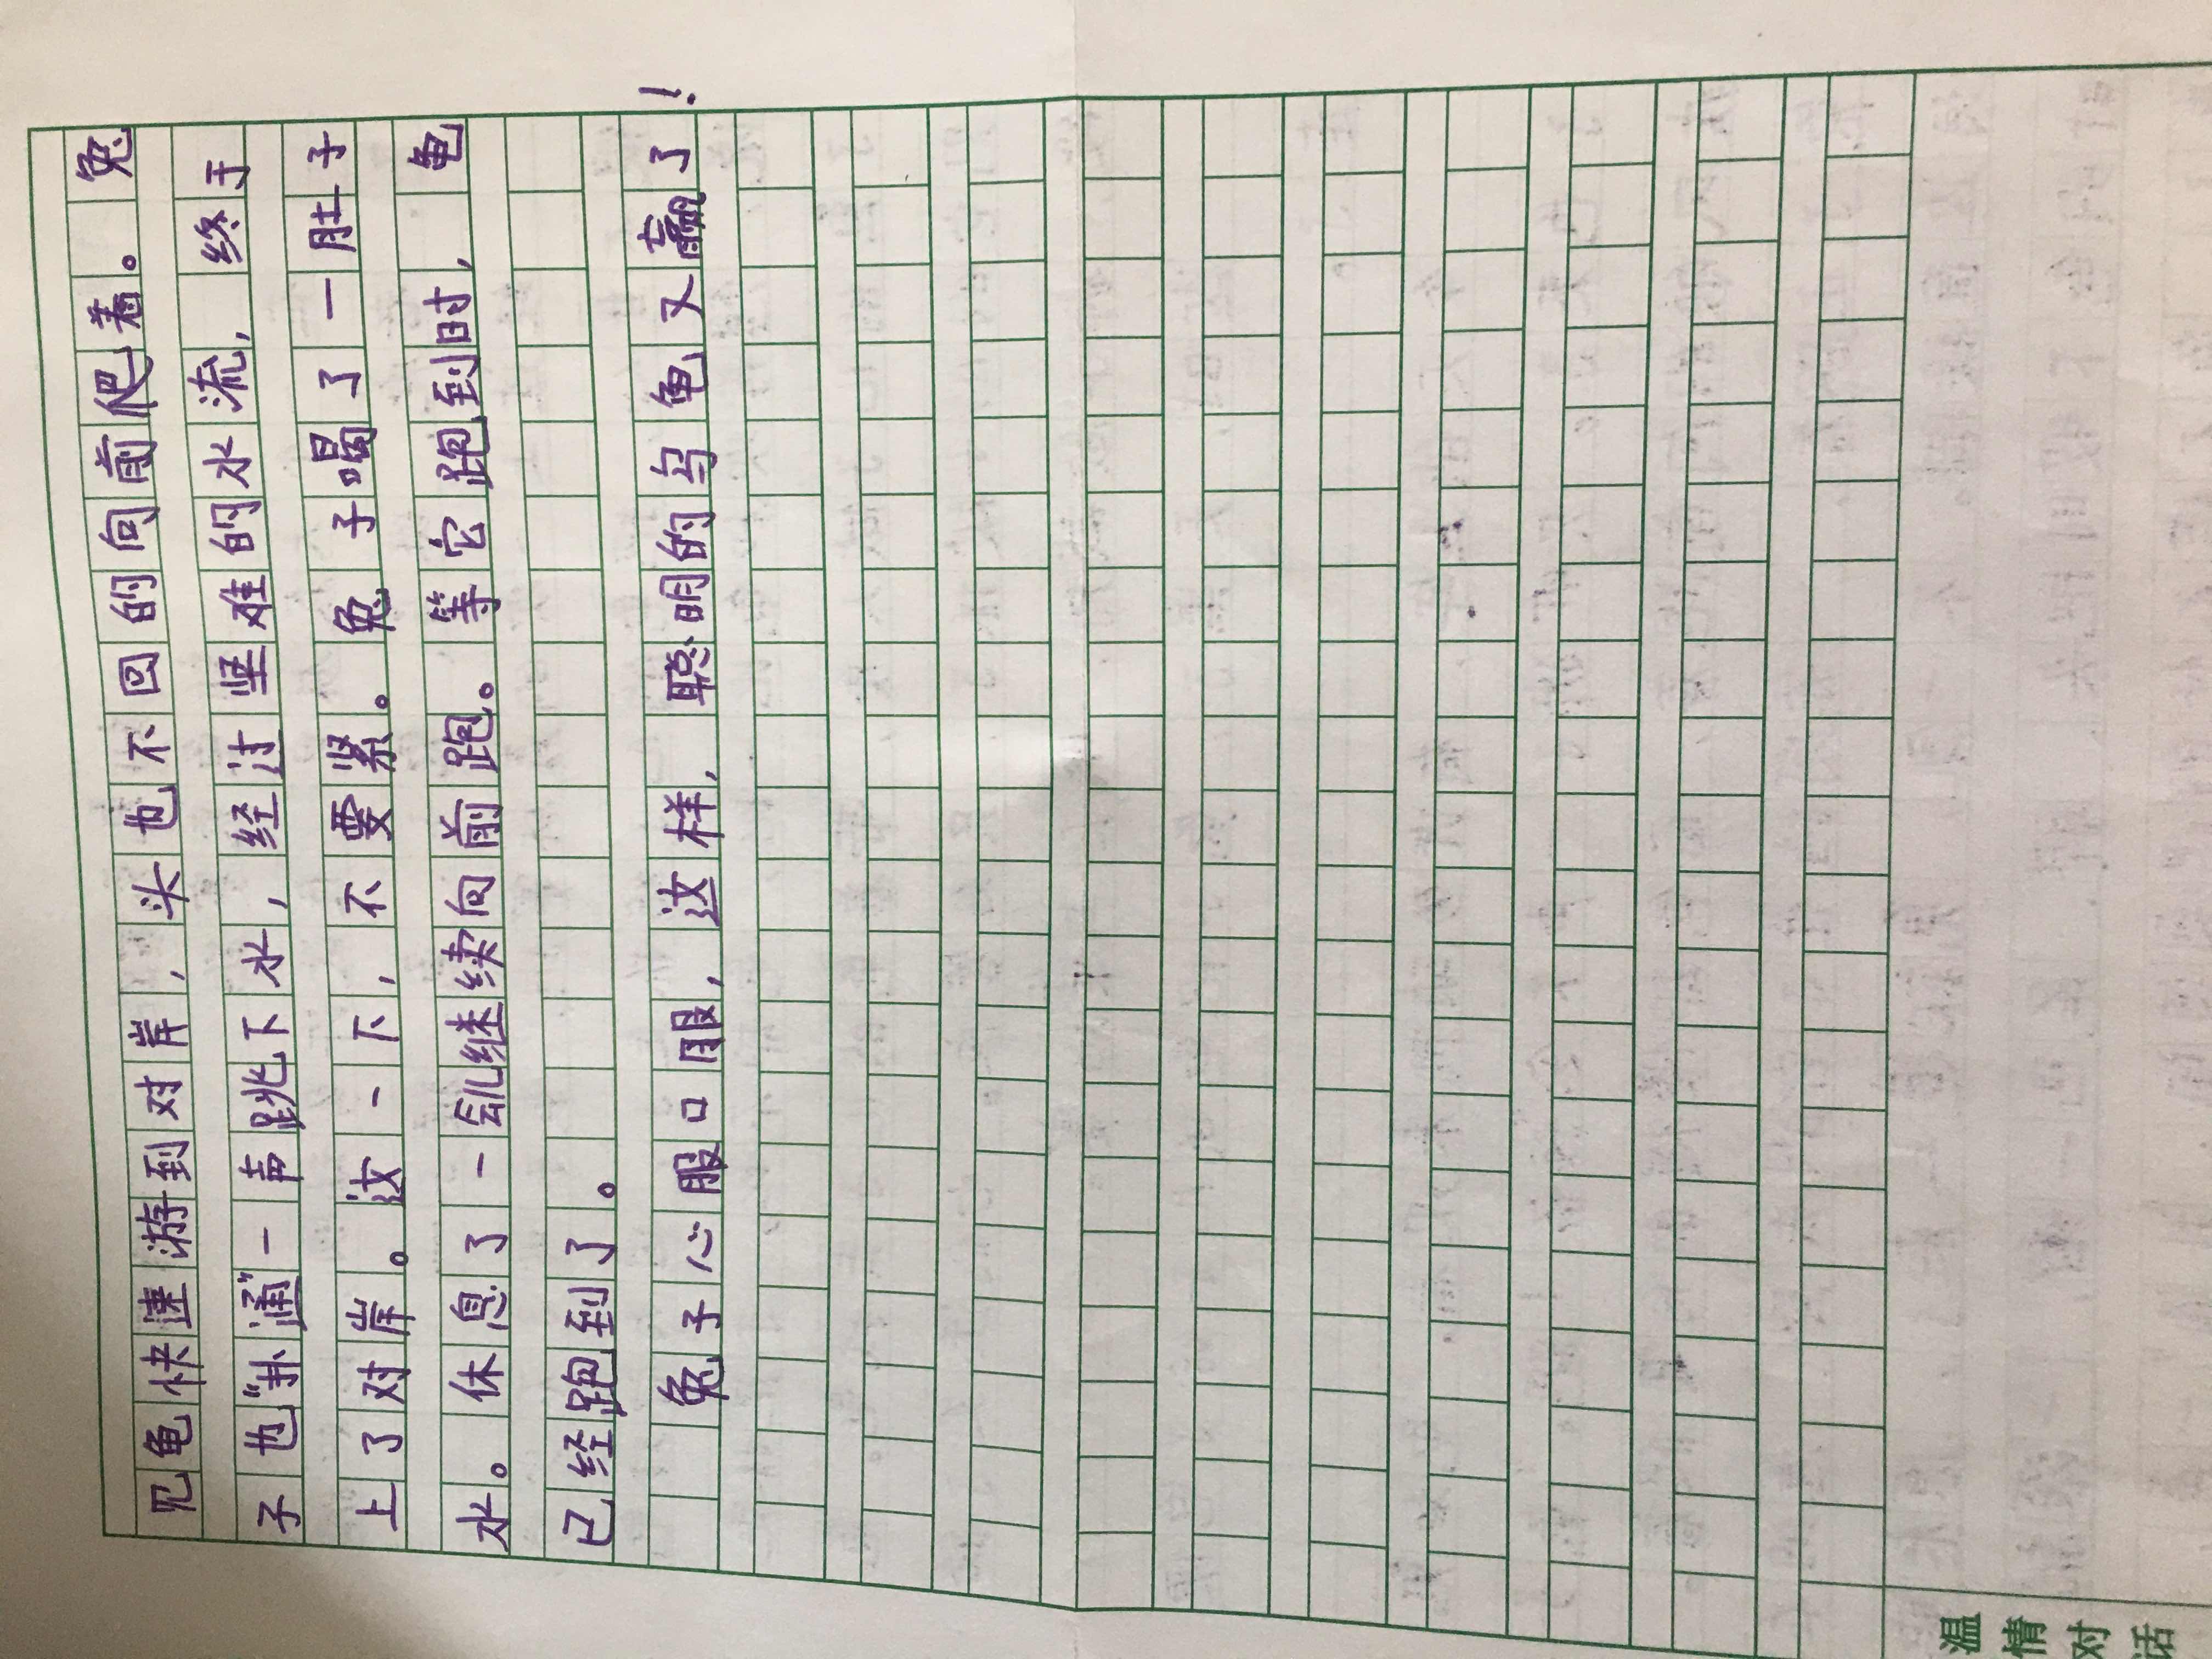 见龟快速游到对岸，头也不回的向前爬着。兔
子也“扑通”一声跳下水，经过坚难的水流，终于
上了对岸。这一下，不要紧。兔子喝了一肚子
水。休息了一乱继续向前跑。等它跑到时，龟
已经跑到了。
兔子心服口服，这样，聪明的乌龟又赢了！
温情对话